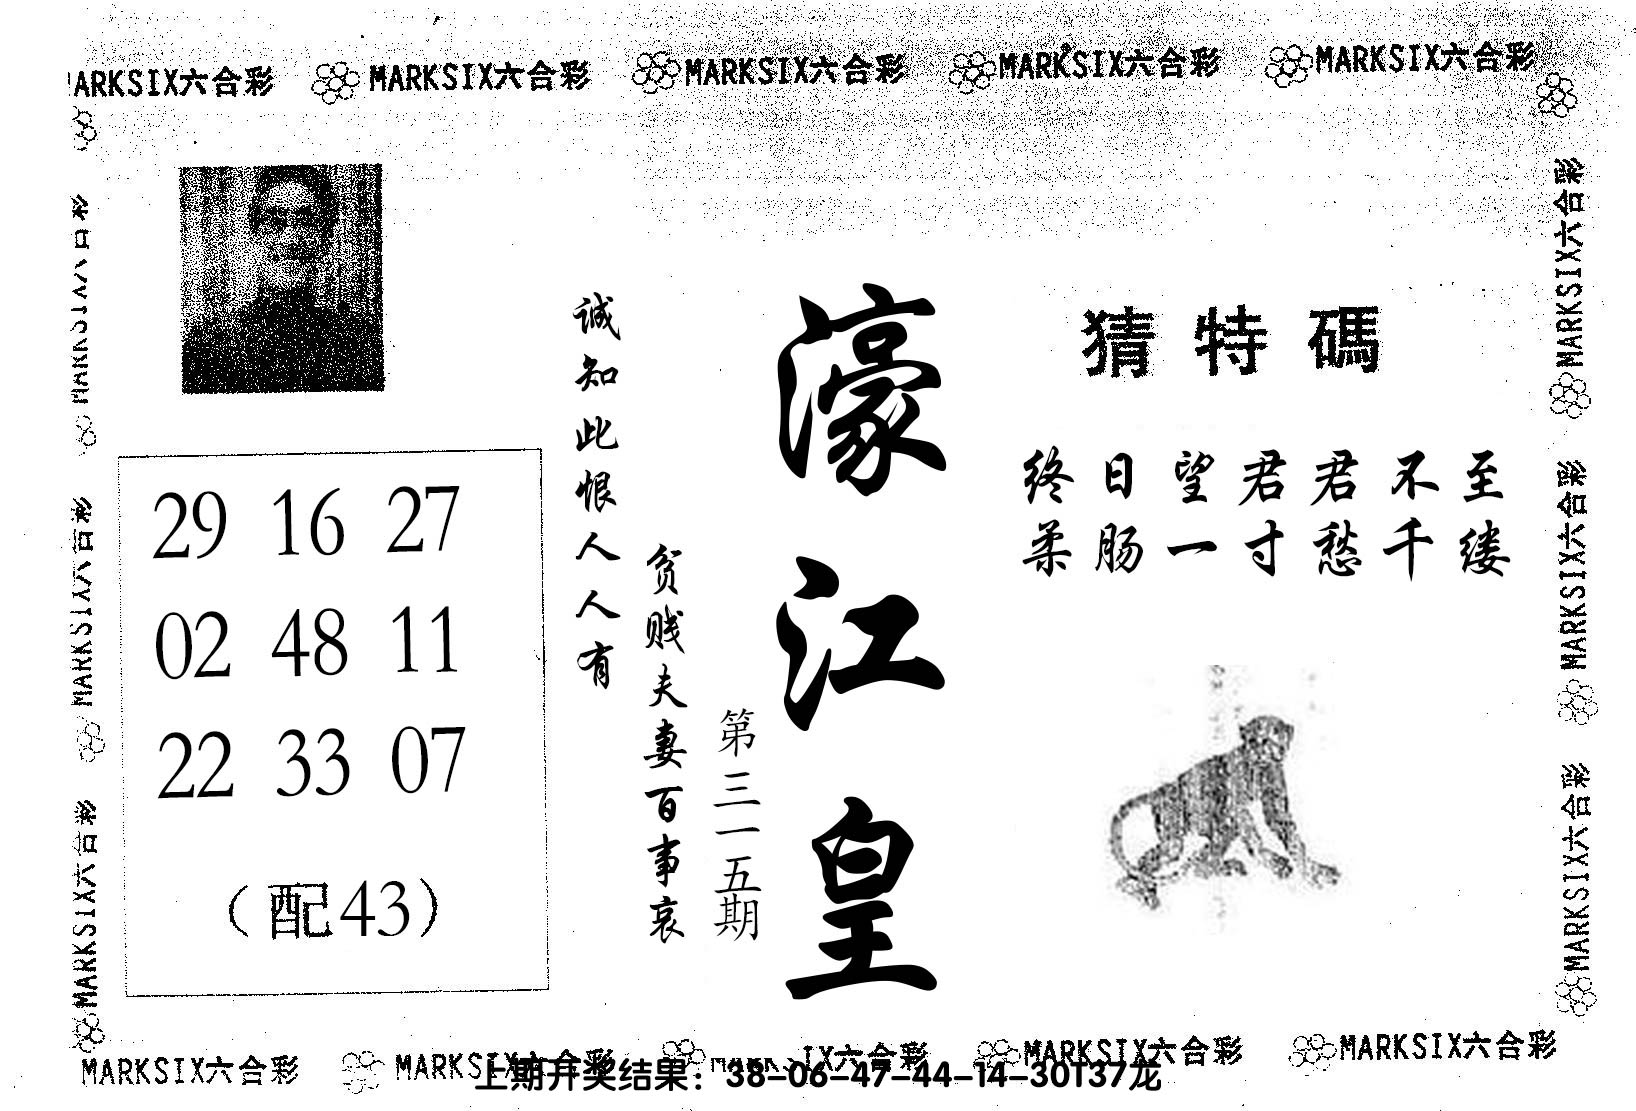 MARKSIX六合彩 MARKSIX六合彩 MARKSIX六合彩 MARKSIX六合彩 MARKSIX六合彩
猜特碼
终日望君君不至
柔肠一寸愁千缕
濠江皇
第三一五期
诚知此恨人人有
贫贱夫妻百事哀
29 16 27
02 48 11
22 33 07
（配43）
MARKSIX六合彩
MARKSIX六合彩
MARKSIX六合彩
MARKSIX六合彩
MARKSIX六合彩
MARKSIX六合彩
MARKSIX六合彩 MARKSIX六合彩 MARKSIX六合彩 MARKSIX六合彩
上期开奖结果：38-06-47-44-14-30T37龙